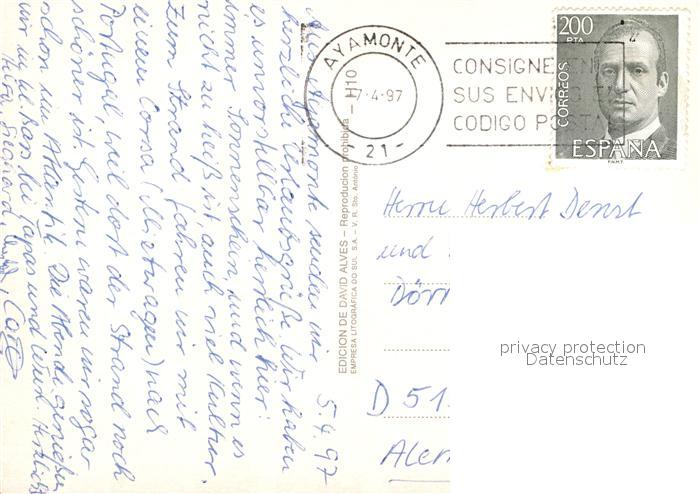 5.4.97
Aus Ayamonte senden wir
herzliche Urlaubsgrüße. Wir haben
es unvorstellbar herrlich hier:
immer Sonnenschein, und wenn es
nicht zu heiß ist, auch viel Kultur.
Zum Strand fahren wir mit
einem Corsa (Mietwagen) nach
Portugal, weil dort der Strand noch
schöner ist. Gestern waren wir sogar
schon im Atlantik. Die Abende genießen
wir in Bars bei Tapas und Wein. Herzlichst
EDICION DE DAVID ALVES – Reproducion prohibida – H10
EMPRESA LITOGRÁFICA DO SUL, S.A. – V. R. Sto. António
AYAMONTE
7-4-97
- 21 -
CONSIGNE EN
SUS ENVIOS
CODIGO POSTA
200
PTA
CORREOS
ESPAÑA
F.N.M.T.
Herrn Herbert
und
D 51
Alem
privacy protection
Datenschutz